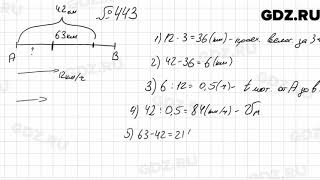 GDZ.RU
№443
42 км
63 км
A ? B
12 км/ч
1) 12 · 3 = 36 (км) - проех. велос. за 3 ч
2) 42 - 36 = 6 (км)
3) 6 : 12 = 0,5 (ч) - t мот. от A до в
4) 42 : 0,5 = 84 (км/ч) - υм
5) 63 - 42 = 21